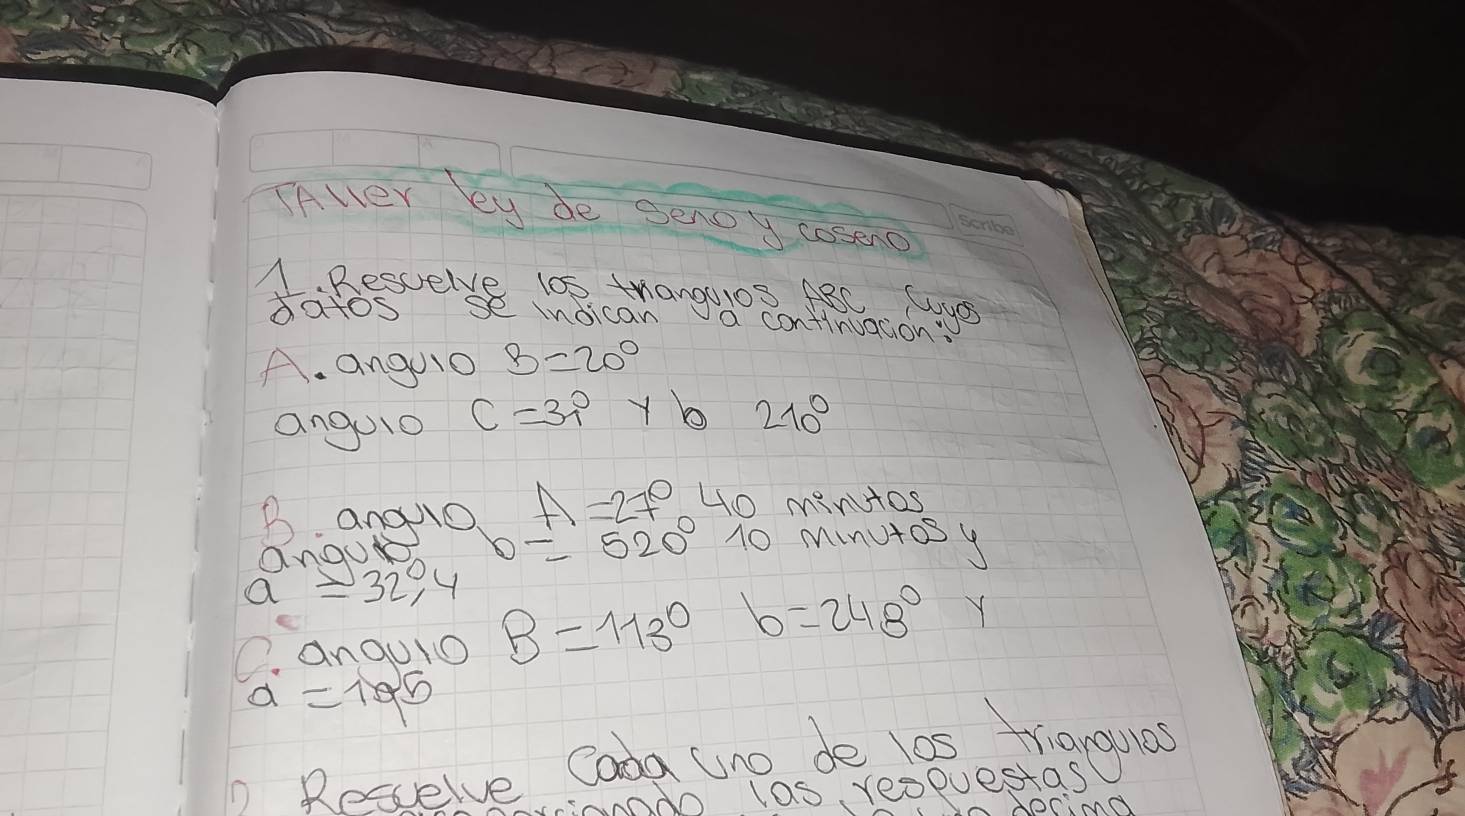 TAller ley de seno y coseno
Scribe
1. Resuelve los triangulos ABC cuyos
datos se indican a continuacion:
A. angulo B=20°
angulo C=31° y b 210°
B. angulo A=27° 40 minutos
angulo b= 520° 10 minutos y
a =32°,4
C. angulo B=113° b=248° y
a =195
2 Resuelve cada uno de los triangulos
las respuestas
decima